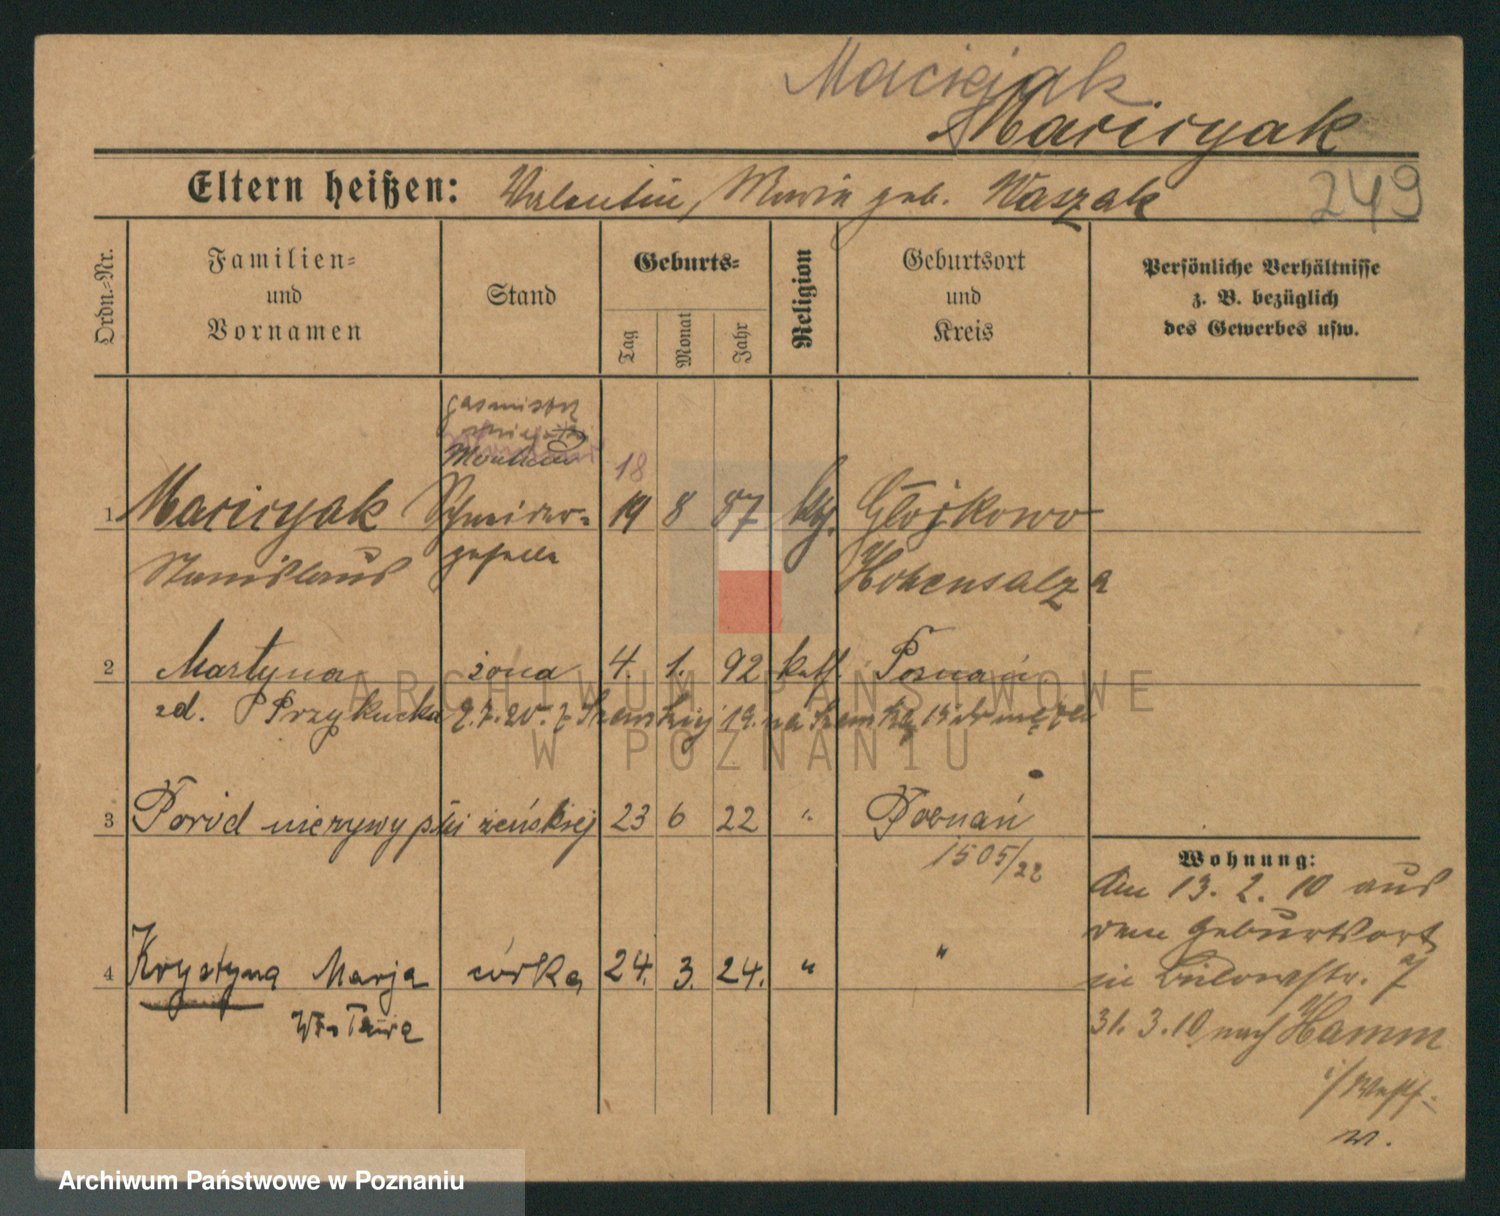 Maciejak
Macieyak
Eltern heißen: Valentin, Maria geb. Waszak
249
Ordn.=Nr.
Familien=
und
Vornamen
Stand
Geburts=
Tag
Monat
Jahr
Religion
Geburtsort
und
Kreis
Persönliche Verhältnisse
z. B. bezüglich
des Gewerbes usw.
18
1 Macieyak Schneider= 19 8 87 kg. Głojkowo
Stanislaus geselle Hohensalza
2 Martyna żona 4. 1. 92 kath. Poznań
zd. Przykucka
3 Poród nieżywy płci żeńskiej 23 6 22 " Poznań
1505/22
Wohnung:
Am 13. 2. 10 aus
dem Geburtsort
in Bülowstr. 7
31. 3. 10 nach Hamm
i/Westf.
w.
4 Krystyna Marja córka 24. 3. 24. " "
ARCHIWUM PAŃSTWOWE
W POZNANIU
Archiwum Państwowe w Poznaniu